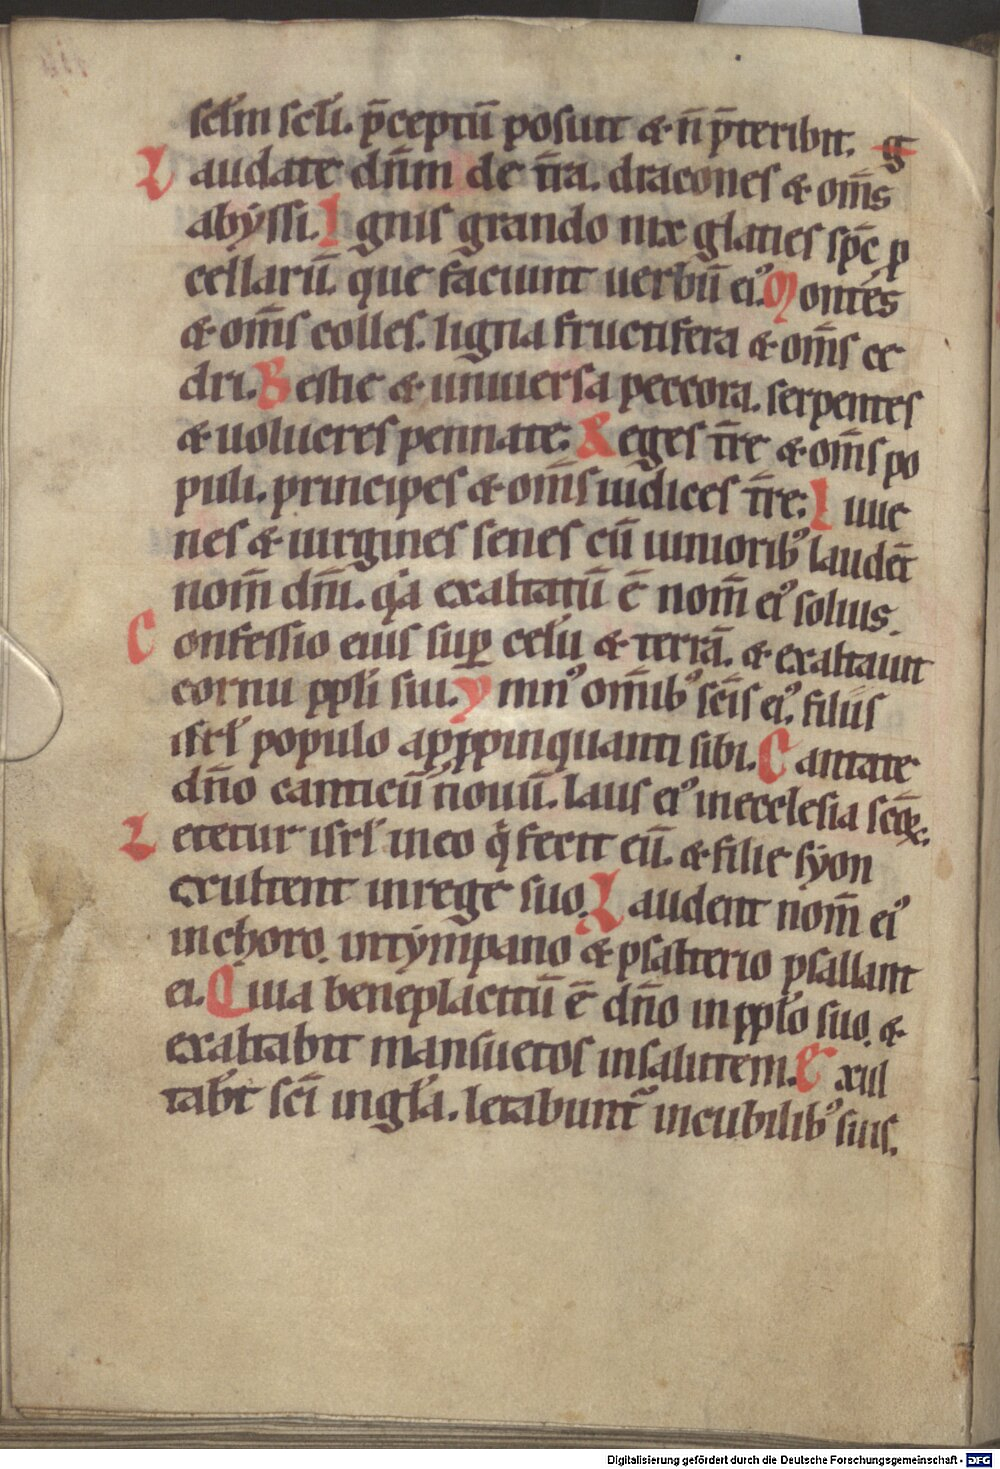 sełm sełi. p̄ceptū posuit & n̄ p̄teribit. g
Laudate dn̄m de t̄ra. dracones & om̄s
abyssi. Ignis grando nix glacies sp̄c p
cellarū. que faciunt uerbū ei᾽. Montes
& om̄s colles. ligna fructifera & om̄s ce
dri. Bestie & uniuersa peccora. serpentes
& uolucres pennate: Reges t̄re & om̄s po
puli. principes & om̄s iudices t̄re: Iuue
nes & uirgines senes cū iuniorib᾽ laudēt
nom̄ dn̄i. q̇a exaltatū ē nom̄ ei᾽ solius.
Confessio eius sup̄ celū & terrā. & exaltauit
cornu ppłi sui. Ymn᾽ om̄ib᾽ sc̄is ei᾽. filiis
isrł populo appropinquanti sibi. Cantate
dn̄o canticū nouū. laus ei᾽ in ecclesia scōꝝ.
Letetur isrł in eo q̇ fecit eū. & filie syon
exultent in rege suo. Laudent nom̄ ei᾽
in choro. in tympano & psalterio psallant
ei. Quia beneplacitū ē dn̄o in ppło suo. &
exaltabit mansuetos in salutem. Exul
tab̄t sc̄i in gła. letabunt᾽ in cubilib᾽ suis.
Digitalisierung gefördert durch die Deutsche Forschungsgemeinschaft - DFG